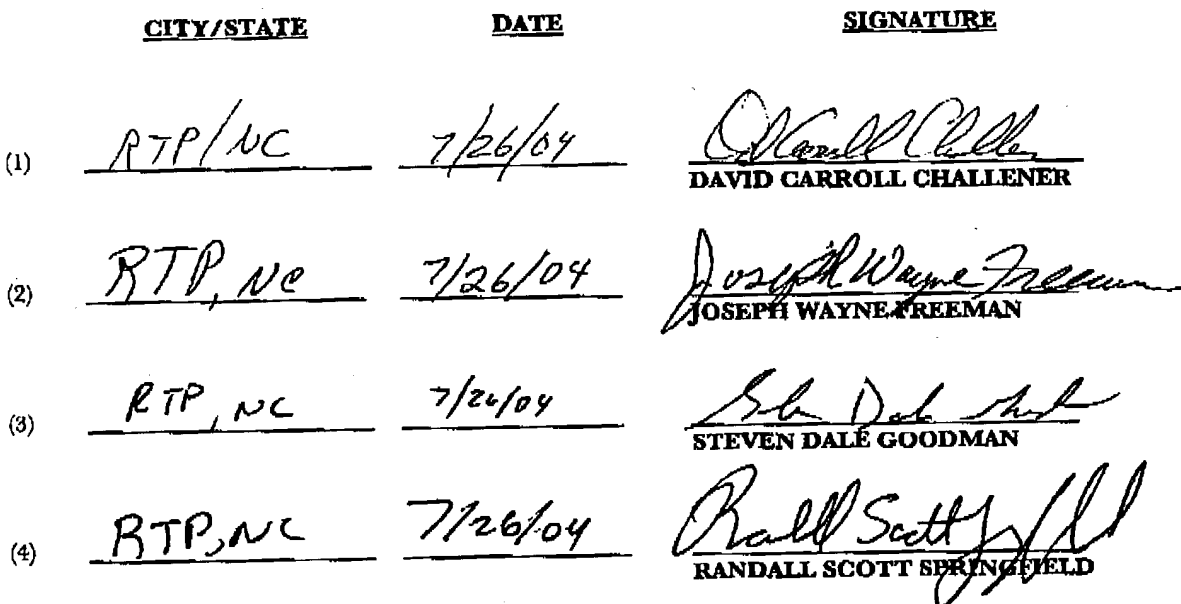 CITY/STATE DATE SIGNATURE
(1) RTP/NC 7/26/04 David Carroll Challener
DAVID CARROLL CHALLENER
(2) RTP, NC 7/26/04 Joseph Wayne Freeman
JOSEPH WAYNE FREEMAN
(3) RTP, NC 7/26/04 Dale
STEVEN DALE GOODMAN
(4) RTP, NC 7/26/04 Randall Scott Springfield
RANDALL SCOTT SPRINGFIELD